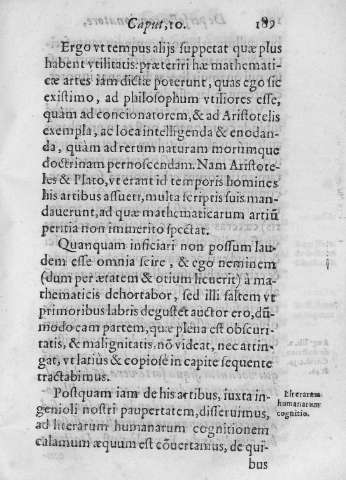 Caput, 10. 189
Ergo vt tempus alijs suppetat quæ plus
habent vtilitatis: præteriri hæ mathemati-
cæ artes iam dictæ poterunt, quas ego sic
existimo, ad philosophum vtiliores esse,
quàm ad concionatorem, & ad Aristotelis
exempla, ac loca intelligenda & enodan-
da, quàm ad rerum naturam morumque
doctrinam pernoscendam. Nam Aristote-
les & Plato, vt erant id temporis homines
his artibus assueti, multa scriptis suis man-
dauerunt, ad quæ mathematicarum artiū
peritia non immerito spectat.
Quanquam inficiari non possum lau-
dem esse omnia scire, & ego neminem
(dum per ætatem & otium licuerit) à ma-
thematicis dehortabor, sed illi saltem vt
primoribus labris degustet auctor ero, dū-
modo eam partem, quæ plena est obscuri-
tatis, & malignitatis. nō videat, nec attin-
gat, vt latiùs & copiosè in capite sequente
tractabimus.
Postquam iam de his artibus, iuxta in-
genioli nostri paupertatem, disseruimus,
ad literarum humanarum cognitionem
calamum æquum est cōuertamus, de qui-
bus
Literarum
humanarum
cognitio.